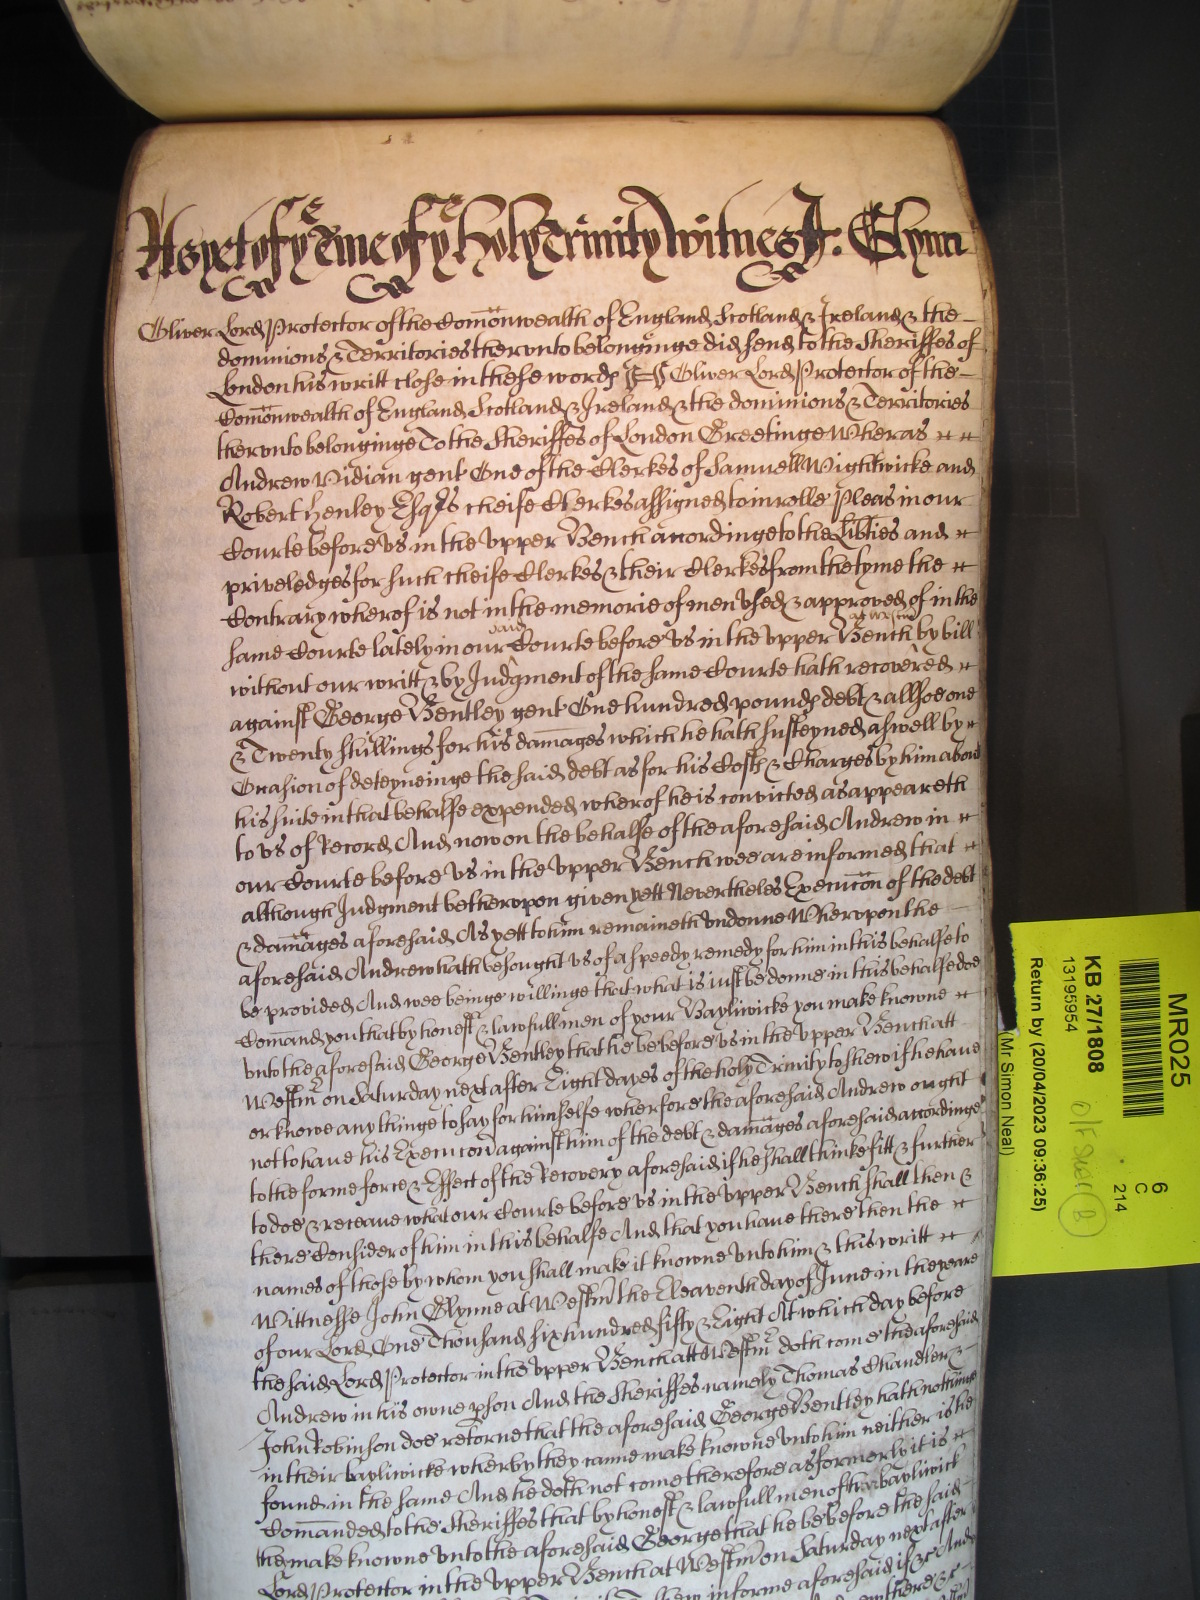 As yet of yᵉ Tyme of yᵉ Holy Trinity Witnes J: Glynn
Oliver Lord Protector of the Com̄onwealth of England Scotland & Ireland & the
dominions & Territories thervnto belonginge did send to the Sheriffes of
London his writt close in these words ss Oliver Lord Protector of the
Com̄onwealth of England Scotland & Ireland & the dominions & Territories
thervnto belonginge To the Sheriffes of London Greetinge Wheras
Andrew Vidian gent One of the Clerkes of Samuell Wightwicke and
Robert Henley Esqrs cheife Clerkes assigned to inrolle Pleas in our
Courte before vs in the vpper Bench accordinge to the Libties and
priveledges for such cheife Clerkes & their Clerkes from the tyme the
Contrary wherof is not in the memorie of men vsed & approved of in the
same Courte lately in our said Courte before vs in the vpper Bench at Westm by bill
without our writt & by Judgment of the same Courte hath recovered
against George Bentley gent One hundred pounds debt & allsoe one
& Twenty shillings for his dam̄ages which he hath susteyned aswell by
Occasion of deteyneinge the said debt as for his Costs & Charges by him about
his suite in that behalfe expended wherof he is convicted as appeareth
to vs of Record And now on the behalfe of the aforesaid Andrew in
our Courte before vs in the vpper Bench wee are informed that
although Judgment be thervpon given yett Nevertheles Execucōn of the debt
& dam̄ages aforesaid As yett to him remaineth vndonne Whervpon the
aforesaid Andrew hath besought vs of a speedy remedy for him in this behalfe to
be provided And wee beinge willinge that what is iust be donne in this behalfe doe
Com̄and you that by honest & lawfull men of your Bayliwicke you make knowne
vnto the aforesaid George Bentley that he be before vs in the vpper Bench att
Westm̄ on Saturday next after Eight dayes of the holy Trinity to shew if he have
or knowe any thinge to say for himselfe wherfore the aforesaid Andrew ought
not to have his Execucōn against him of the debt & dam̄ages aforesaid accordinge
to the forme force & Effect of the Recovery aforesaid if he shall thinke fitt & further
to doe & receave what our Courte before vs in the vpper Bench shall then &
there Consider of him in this behalfe And that you have there then the
names of those by whom you shall make it knowne vnto him & this writt
Wittnesse John Glynne at Westm̄ the Eleaventh day of June in the yeare
of our Lord One Thousand six hundred fifty & Eight At which day before
the said Lord Protector in the vpper Bench att Westm̄ doth come the aforesaid
Andrew in his owne pson And the Sheriffes namely Thomas Chandler &
John Robinson doe retorne that the aforesaid George Bentley hath nothinge
in their bayliwicke wherby they canne make knowne vnto him neither is he
found in the same And he doth not come therefore as formerly it is
Com̄anded to the Sheriffes that by honest & lawfull men of their bayliwick
they make knowne vnto the aforesaid George that he be before the said
Lord Protector in the vpper Bench at Westm̄ on Saturday next after
to shew in forme aforesaid if &c And
there &c
MR025
6
C
214
KB 27/1808
13195954
Return by (20/04/2023 09:36:25)
(Mr Simon Neal)